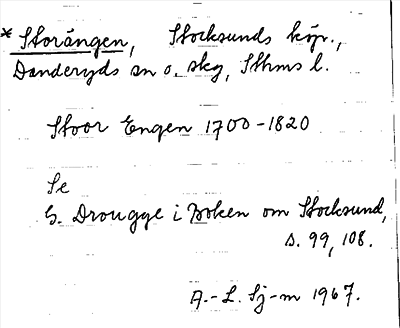 * Storängen, Stocksunds köp.,
Danderyds sn o. skg, Sthms l.
Stoor Engen 1700-1820
Se
G. Drougge i Boken om Stocksund,
s. 99, 108.
A.-L. Sj-m 1967.